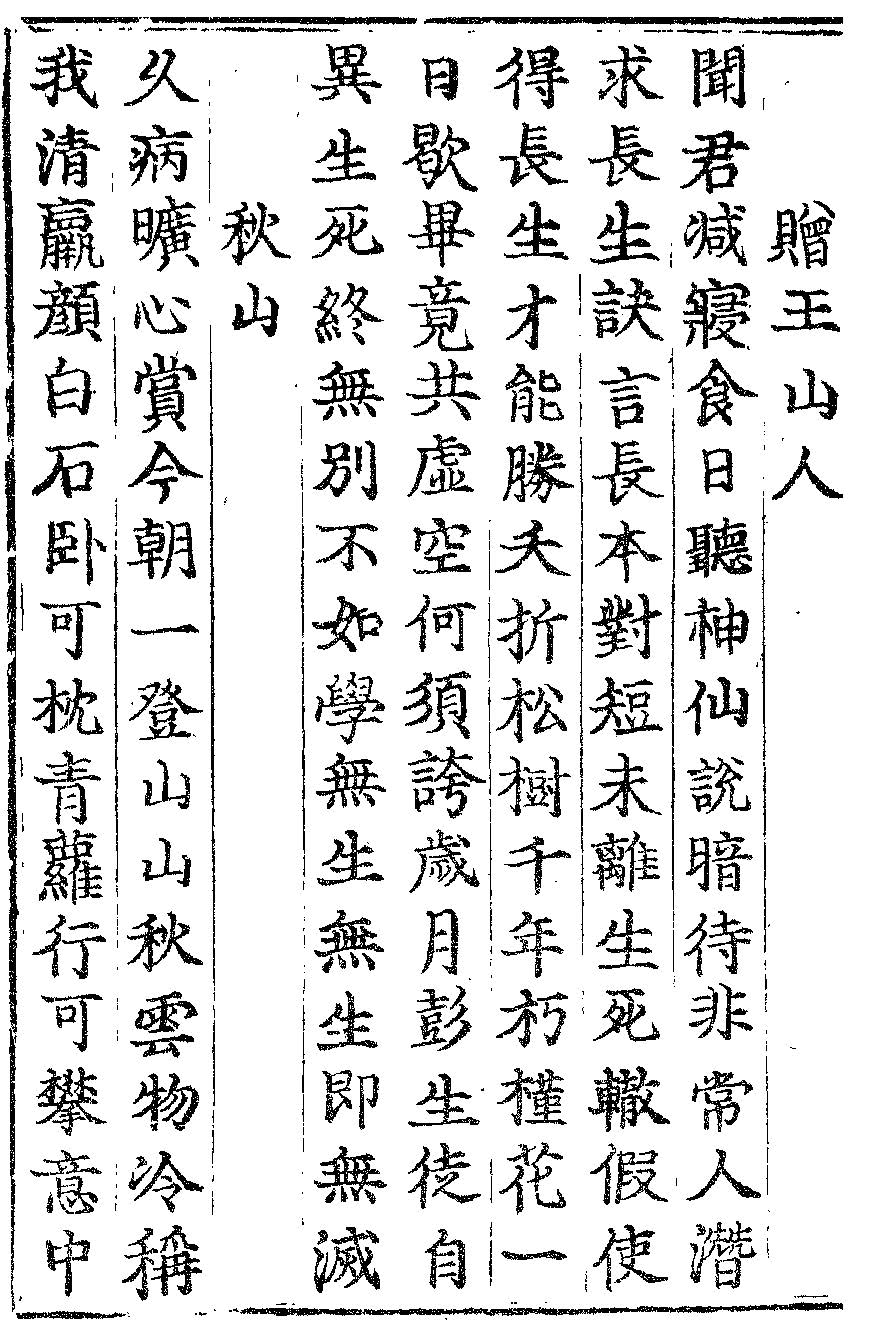 贈王山人
聞君減寢食日聽神仙說暗待非常人潛
求長生訣言長本對短未離生死轍假使
得長生才能勝夭折松樹千年朽槿花一
日歇畢竟共虛空何須誇歲月彭生徒自
異生死終無別不如學無生無生即無滅
秋山
久病曠心賞今朝一登山山秋雲物冷稱
我清羸顏白石卧可枕青蘿行可攀意中